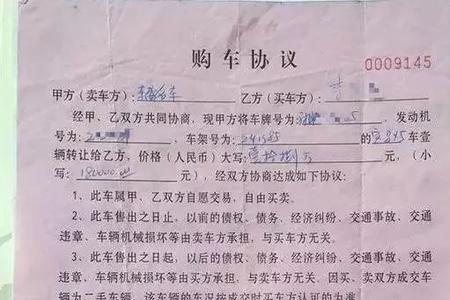 购车协议
0009145
甲方（卖车方）： 乙方（买车方）：李
经甲、乙双方共同协商，现甲方将车牌号为 5，发动机
号为：2 车架号为：241585 的宝345车壹
辆转让给乙方，价格（人民币）大写：壹拾捌万 元，（小
写：180000.00 元），经双方协商达成如下协议：
1、此车属甲、乙双方自愿交易，自由买卖。
2、此车售出之日止，以前的债权、债务、经济纠纷、交通事故、交通
违章、车辆机械损坏等由卖车方承担，与买车方无关。
3、此车售出之日起，以后的债权、债务、经济纠纷、交通事故、交通
违章、车辆机械损坏等由买方承担，与卖车方无关。因买、卖双方成交车
辆为二手车辆，该车辆的车况按成交时买车方认可的为准